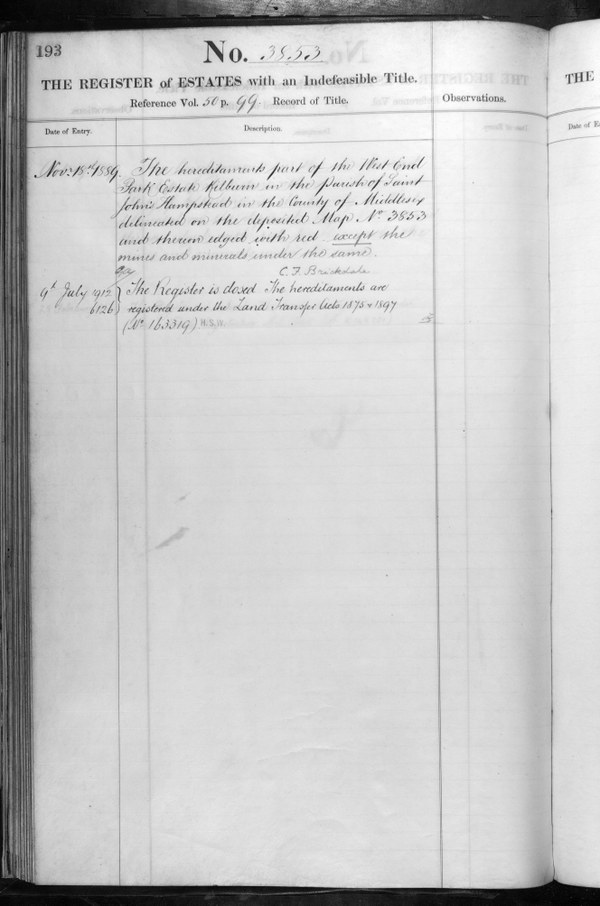 193
No. 3853
THE REGISTER of ESTATES with an Indefeasible Title.
Reference Vol. 50 p. 99. Record of Title.
Observations.
Date of Entry.
Description.
Nov: 18th 1889. The hereditaments part of the West End
Park Estate Kelburn in the Parish of Saint
John's Hampstead in the County of Middlesex
delineated on the deposited Map No 3853
and thereon edged with red except the
mines and minerals under the same.
C. F. Brickdale
9th July 1912 The Register is closed The hereditaments are
6126 registered under the Land Transfer Acts 1875 & 1897
(No 163319) H.S.W.
THE
Date of E